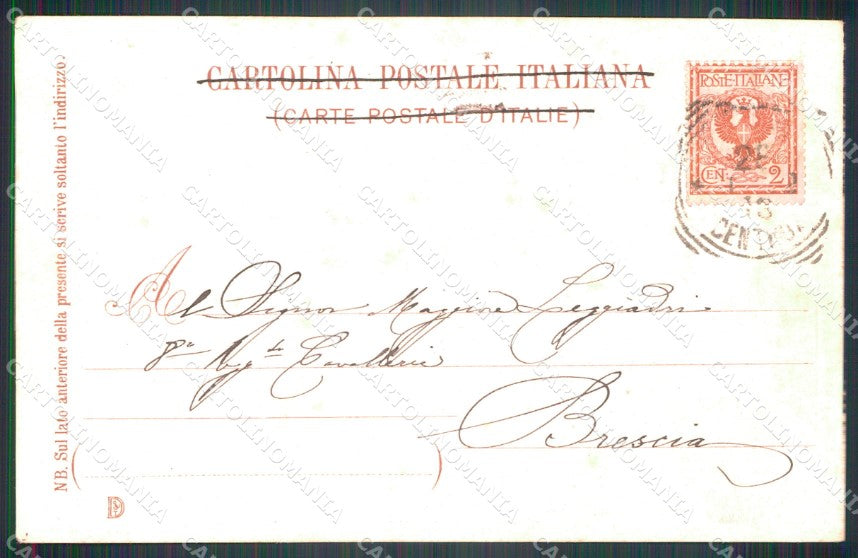 CARTOLINA POSTALE ITALIANA
(CARTE POSTALE D'ITALIE)
POSTE ITALIANE
CEN. 2
25
CENTRO
NB. Sul lato anteriore della presente si scrive soltanto l'indirizzo.
Al Signor Maggiore Leggiadri
Cavalleria
Brescia
CARTOLINOMANIA